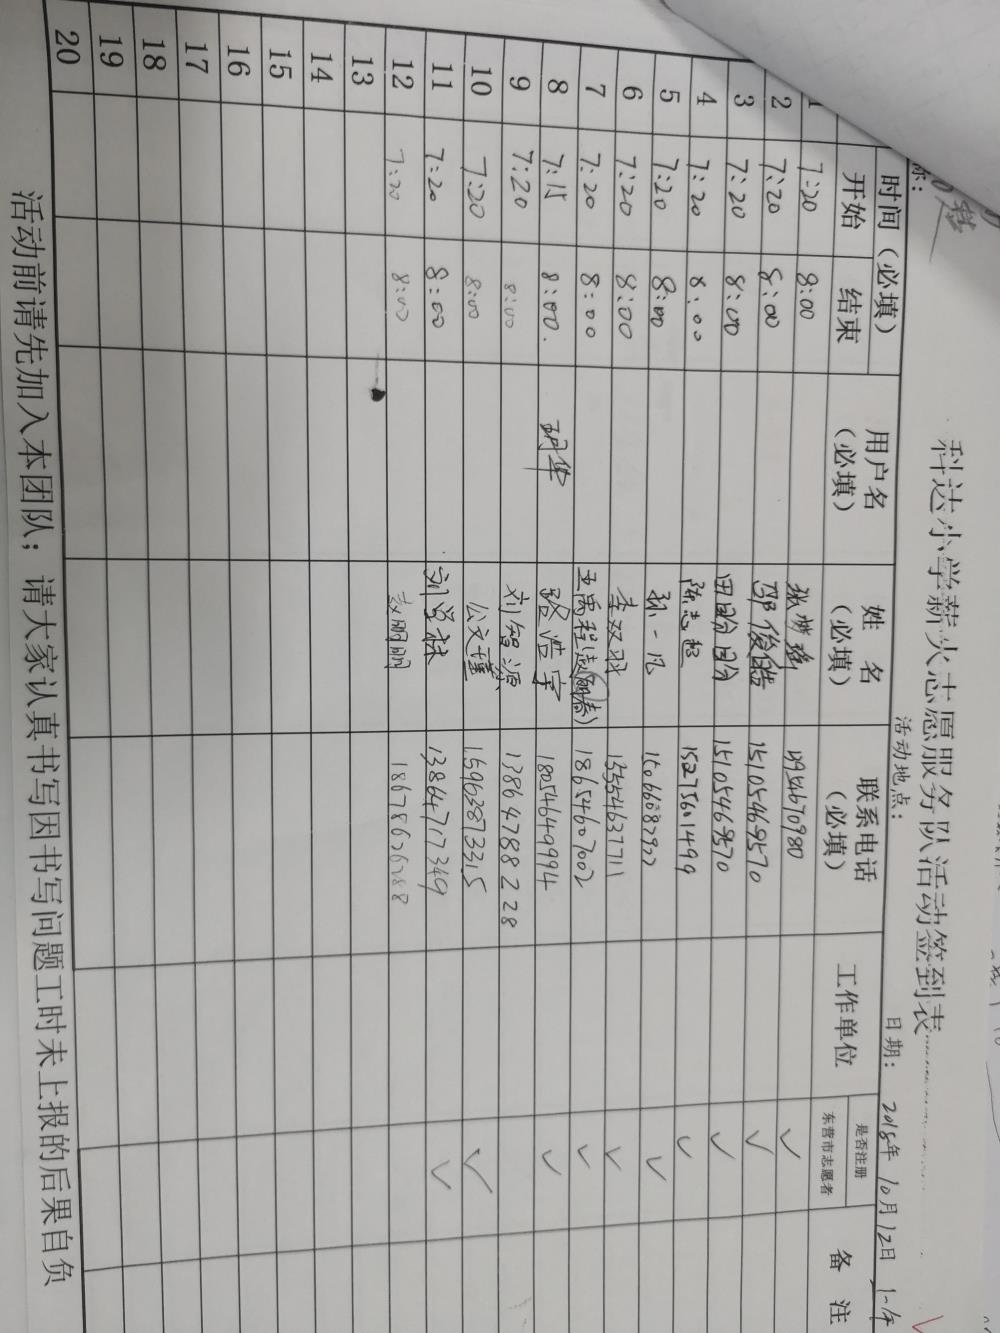 科达小学薪火志愿服务队活动签到表
活动地点： 日期：2018年10月12日
时间（必填） 用户名（必填） 姓名（必填） 联系电话（必填） 工作单位 是否注册东营市志愿者 备注
开始 结束
1 7:20 8:00 ✓
2 7:20 8:00 邵俊皓 15105469570 ✓
3 7:20 8:00 田盼盼 15105469570 ✓
4 7:20 8:00 陈志超 15275601499 ✓
5 7:20 8:00 孙一凡 15066087922 ✓
6 7:20 8:00 李双羽 13554637711 ✓
7 7:20 8:00 18654607002 ✓
8 7:15 8:00. 玥华 路浩宇 18054649994 ✓
9 7:20 8:00 刘智源 13864788228
10 7:20 8:00 公文瑾 15963873315 ✓
11 7:20 8:00 13864717349 ✓
12 7:20 8:00 18678626288
13
14
15
16
17
18
19
20
活动前请先加入本团队；请大家认真书写因书写问题工时未上报的后果自负